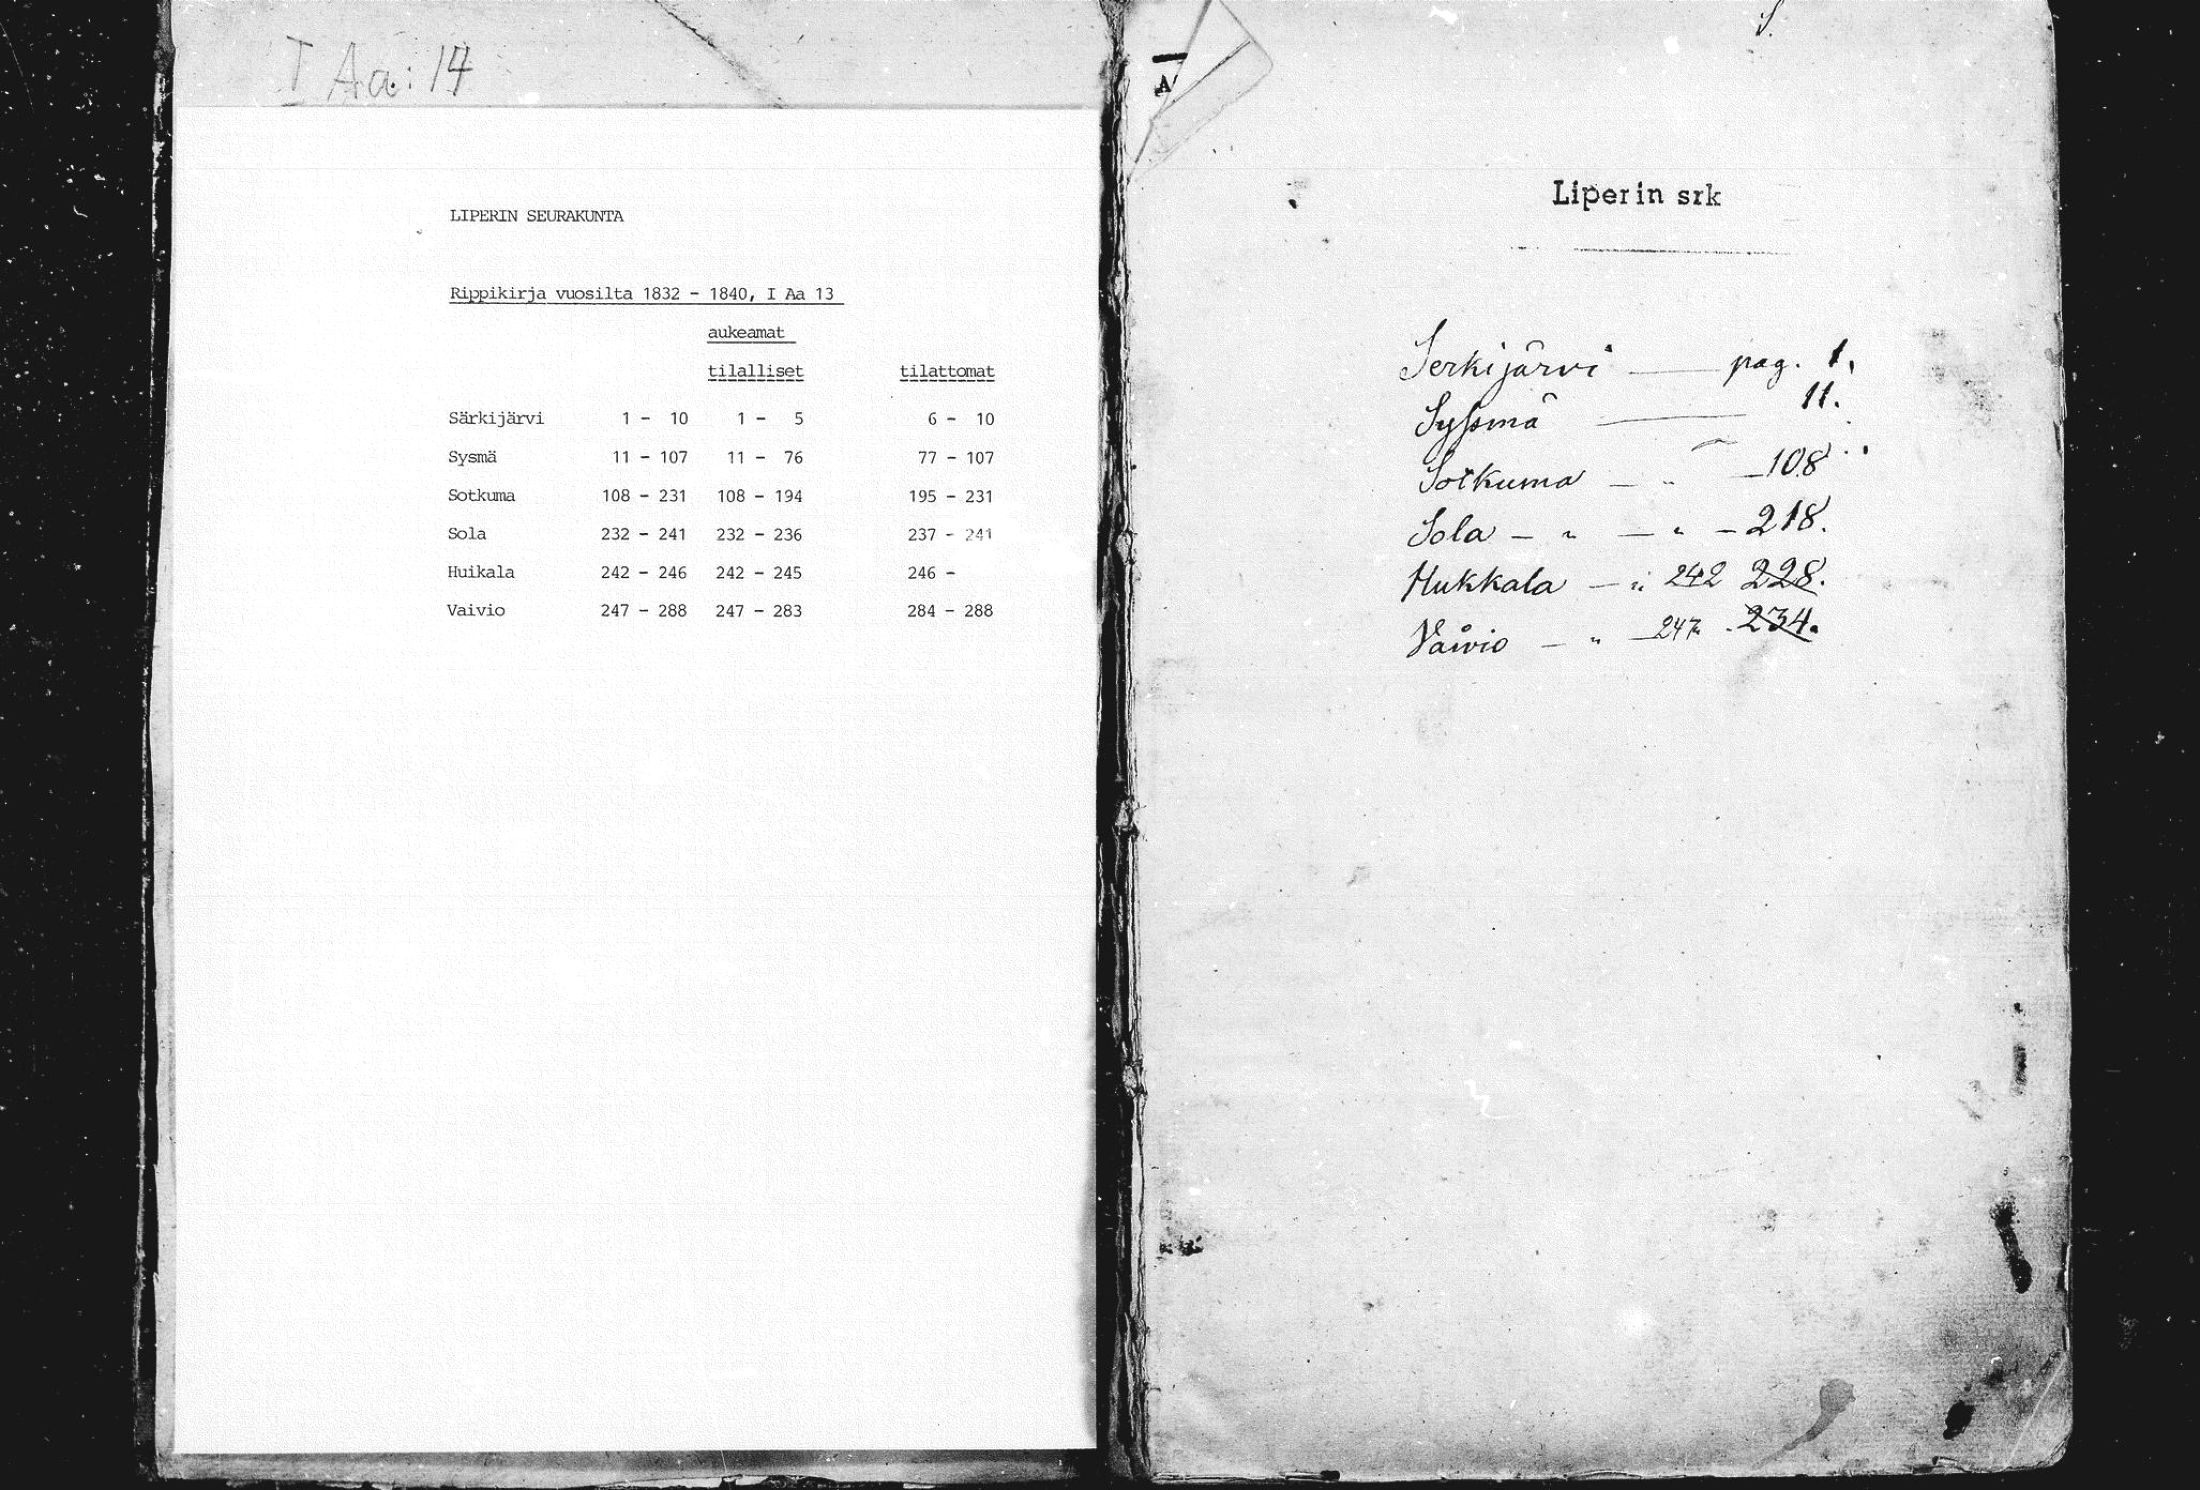 I Aa: 14
LIPERIN SEURAKUNTA
Rippikirja vuosilta 1832 - 1840, I Aa 13
aukeamat
tilalliset tilattomat
Särkijärvi 1 - 10 1 - 5 6 - 10
Sysmä 11 - 107 11 - 76 77 - 107
Sotkuma 108 - 231 108 - 194 195 - 231
Sola 232 - 241 232 - 236 237 - 241
Huikala 242 - 246 242 - 245 246 -
Vaivio 247 - 288 247 - 283 284 - 288
A
Liperin srk
Serkijärvi — pag. 1.
Syssmä — 11.
Sotkuma — " — 108
Sola — " — " — 218.
Hukkala — " 242 228.
Vaivio — " — 247. 234.